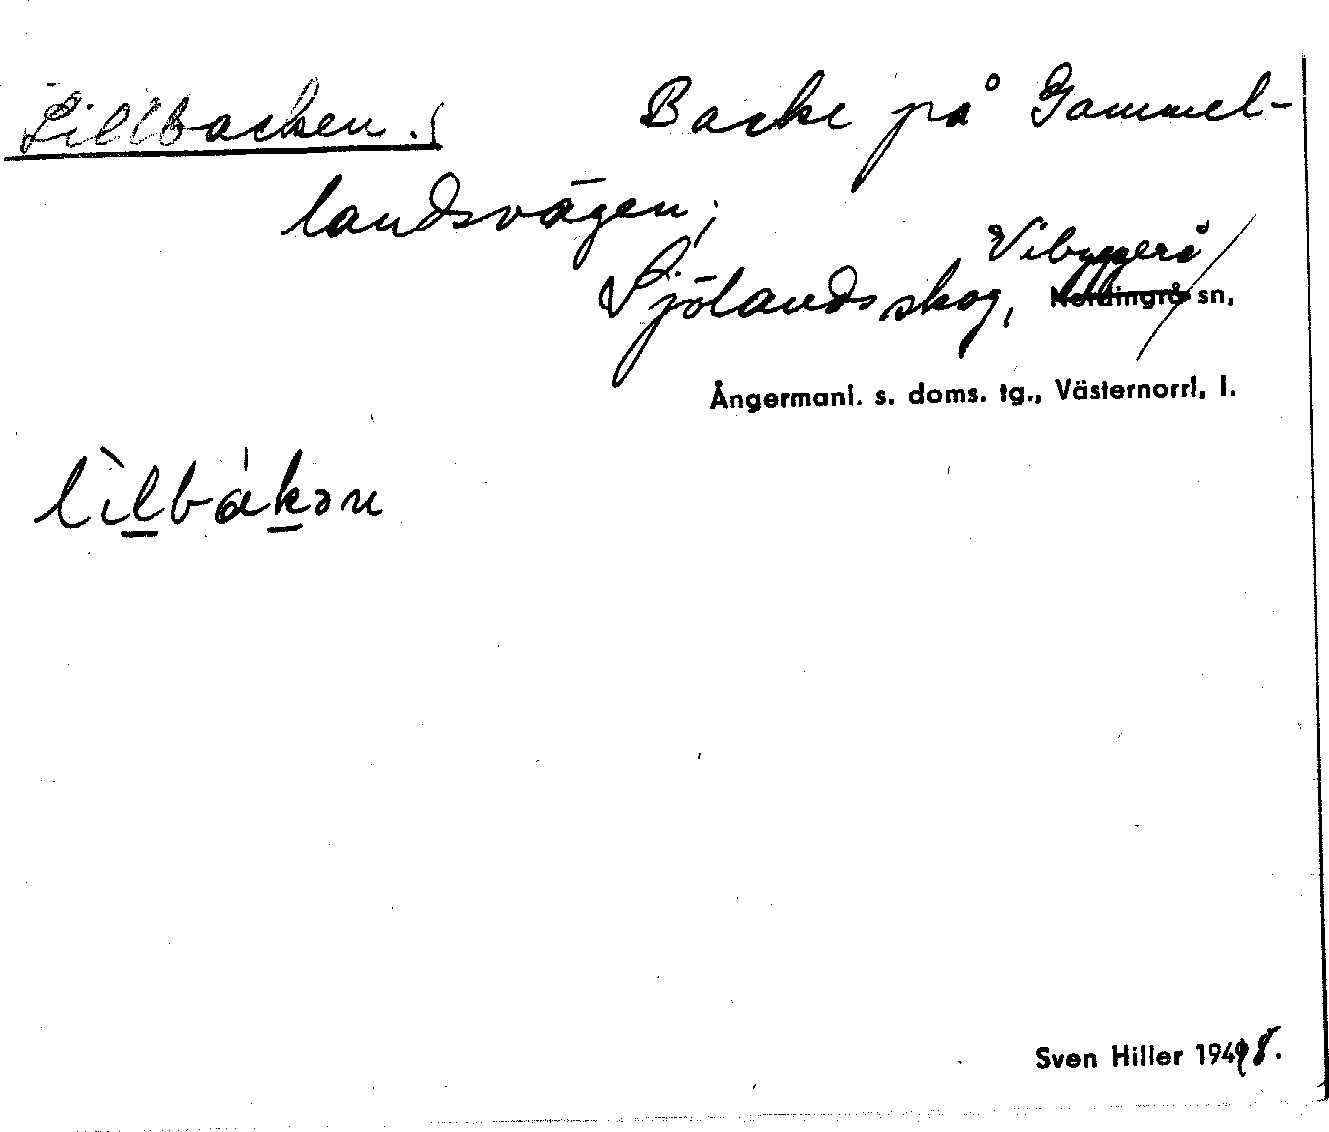 Lillbacken. Backe på Gammel-
landsvägen,
Sjölandsskog, Vibyggerå
Nordingrå sn,
Ångermanl. s. doms. tg., Västernorrl. l.
lìlbákən
Sven Hiller 1948.